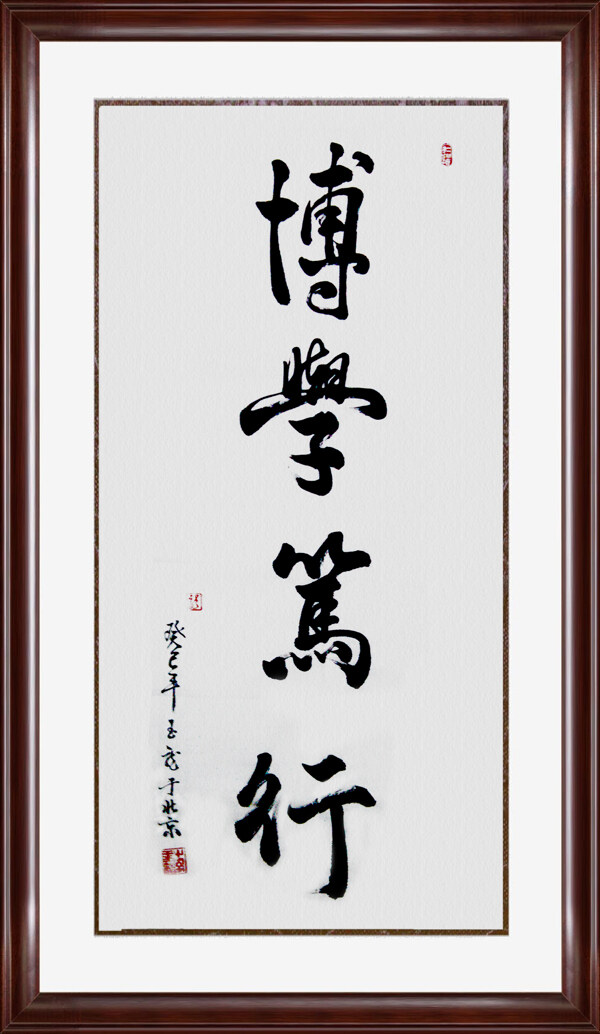 博學篤行
癸巳年玉武于北京